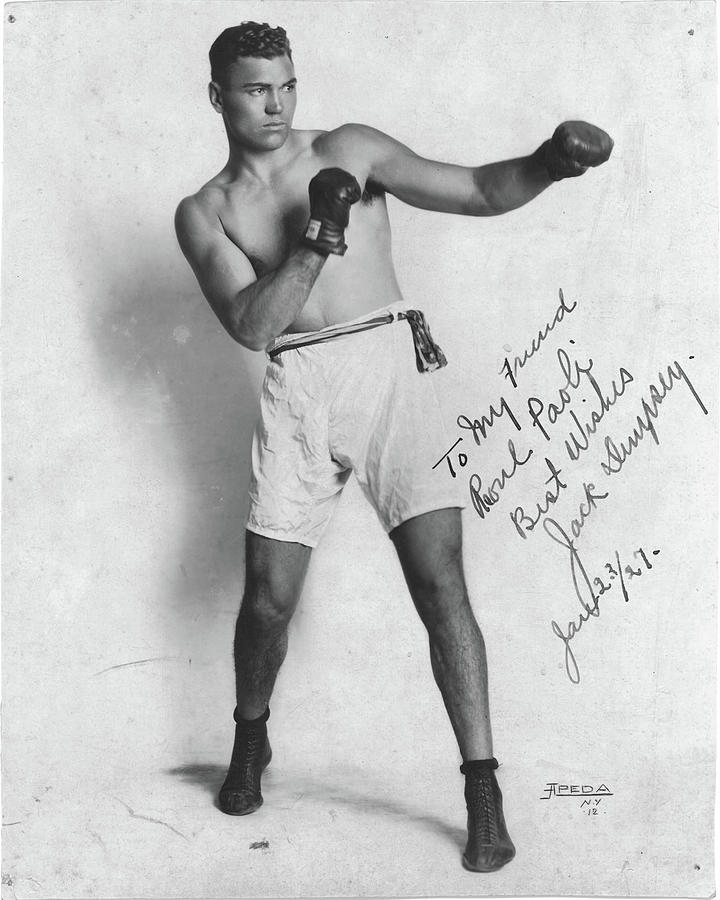 To My Friend
Raoul Paoli
Best Wishes
Jack Dempsey.
Jan 23/27.
APEDA
N.Y.
12